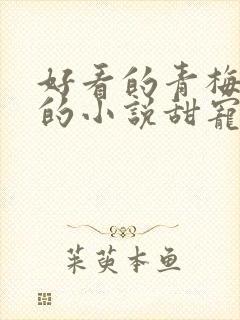 好看的青梅
的小說甜寵
茱萸本鱼